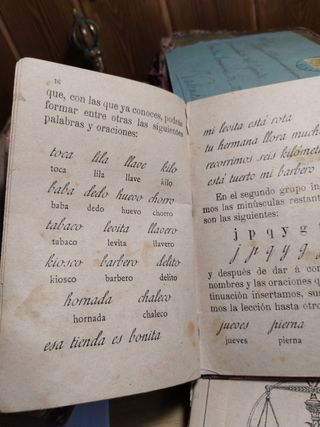 16
que, con las que ya conoces, podrás
formar entre otras las siguientes
palabras y oraciones:
toca lila llave kilo
toca lila llave kilo
baba dedo huevo chorro
baba dedo huevo chorro
tabaco levita llavero
tabaco levita llavero
kiosco barbero delito
kiosco barbero delito
hornada chaleco
hornada chaleco
esa tienda es bonita
mi levita está rota
tu hermana llora mucho
recorrimos seis kilómet
está tuerto mi barbero
En el segundo grupo in
mos las minúsculas restant
son las siguientes:
j p q y g
j p q y g
y después de dar á con
nombres y las oraciones q
tinuación insertamos, sus
mos la lección hasta otro
jueves pierna
jueves pierna